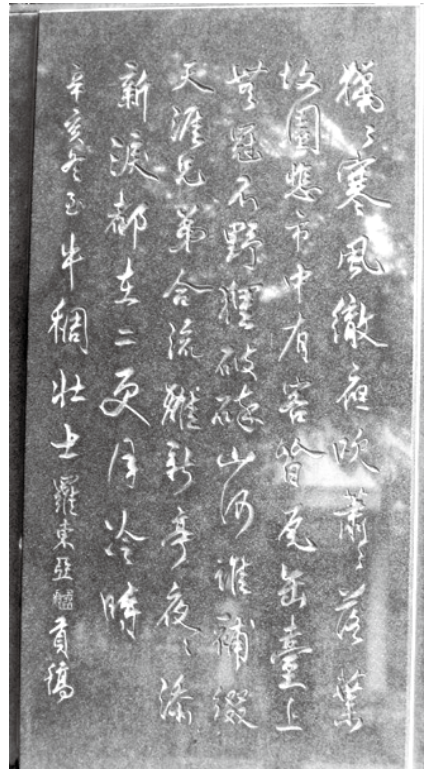 獵々寒風徹夜吹蕭々落葉
故園悲市中有客皆瓦缶臺上
無冠不野狸破碎山河誰補綴
天涯兄弟合流離新亭夜々添
新淚都在二更月冷時
辛亥冬至牛稠壮士羅東亞貢稿